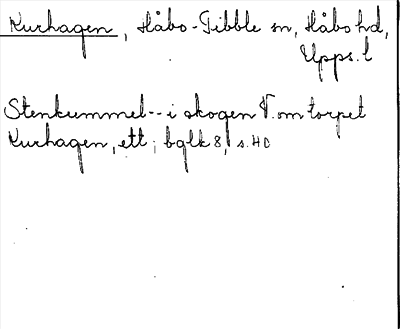 Kurhagen, Håbo-Tibble sn, Håbo hd,
Upps. l
Stenkummel-- i skogen V. om torpet
Kurhagen, ett; bglk 8, s. 40